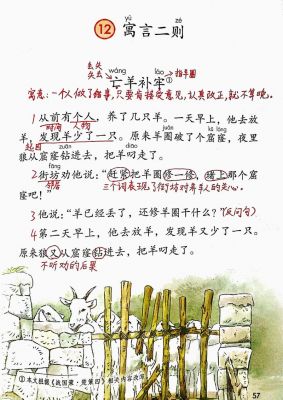 yù zé
12 寓言二则
丢失
失去 wáng láo 指羊圈
亡羊补牢①
寓意：一个人做了错事，只要有接受意见，认真改正，就不算晚。
1 从前有个人，养了几只羊。一天早上，他去放
时间 人物
羊，发现羊少了一只。原来羊圈破了个窟窿，夜里
起因 juàn kū lóng
狼从窟窿钻进去，把羊叼走了。
zuān diāo
fāng
2 街坊劝他说：“赶紧把羊圈修一修，堵上那个窟
邻居
窿吧！” 三个词表现了街坊对养羊人的关心。
3 他说：“羊已经丢了，还修羊圈干什么？”（反问句）
4 第二天早上，他去放羊，发现羊又少了一只。
原来狼又从窟窿钻进去，把羊叼走了。
不听劝的后果
①本文根据《战国策·楚策四》相关内容改写。
57